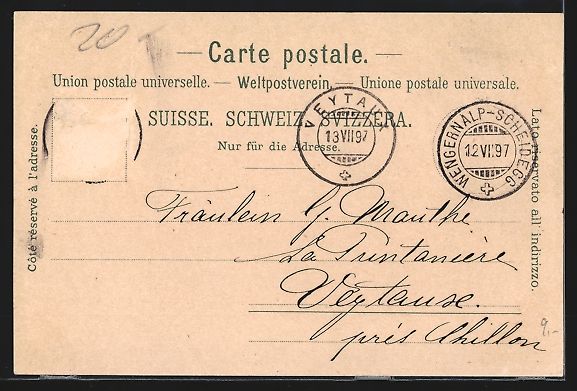 20
— Carte postale. —
Union postale universelle. — Weltpostverein. — Unione postale universale.
SUISSE. SCHWEIZ. SVIZZERA.
Nur für die Adresse.
Côté réservé à l'adresse.
Lato riservato all' indirizzo.
VEYTAUX
13 VII 97
WENGERNALP-SCHEIDEGG
12 VII 97
Fräulein G. Mauthe
La Printanière
Veytause.
près Chillon
9,-